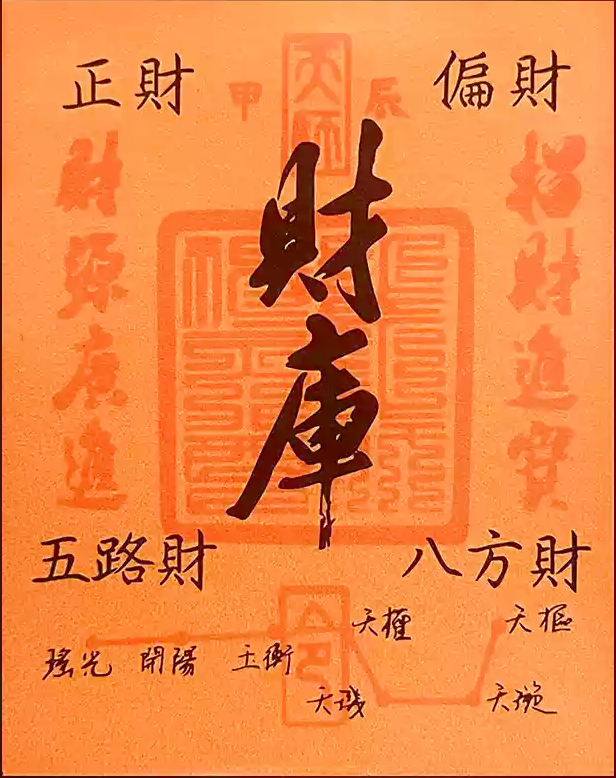 正財
偏財
天師
甲
辰
財庫
招財進寶
財源廣進
五路財
八方財
瑤光
開陽
玉衡
天權
天璣
天璇
天樞